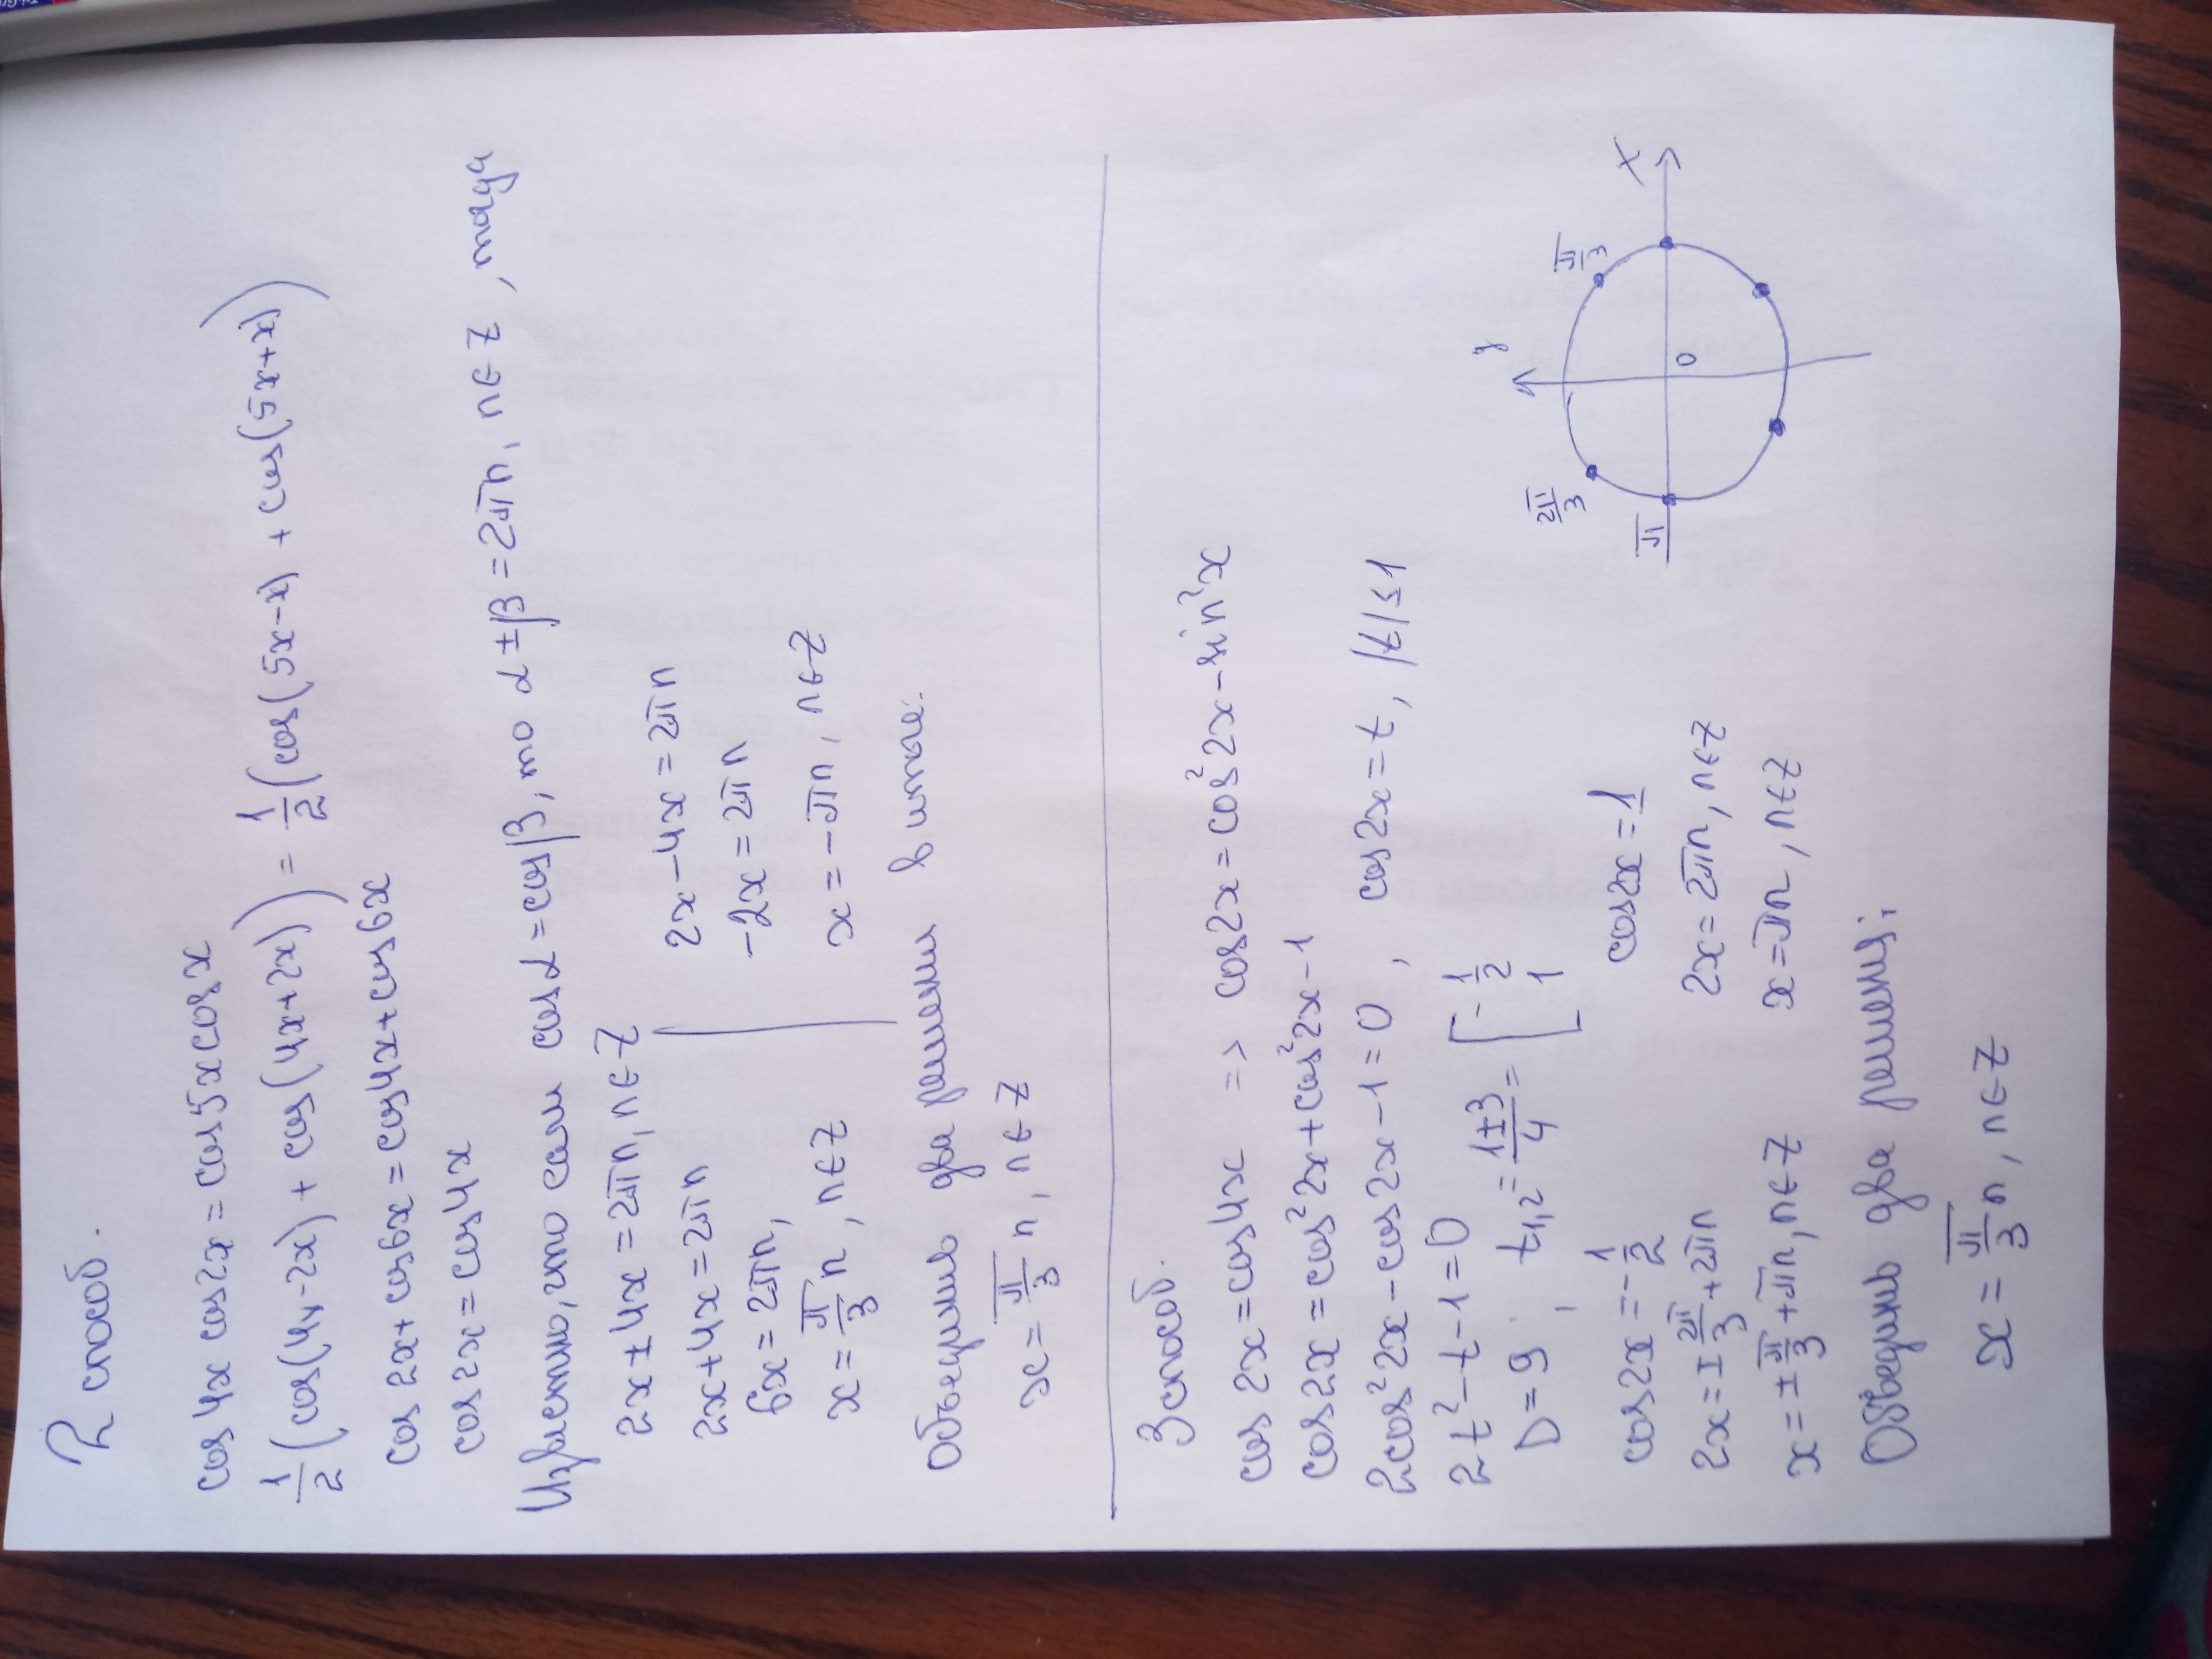 2 способ.
cos 4x cos2x = cos5x cosx
1/2 (cos(4x-2x) + cos(4x+2x)) = 1/2 (cos(5x-x) + cos(5x+x))
cos 2x + cos6x = cos4x + cos6x
cos 2x = cos 4x
Известно, что если cos α = cos β, то α ± β = 2πn, n ∈ Z, тогда
2x ± 4x = 2πn, n ∈ Z
2x + 4x = 2πn
6x = 2πn,
x = π/3 n, n ∈ Z
2x - 4x = 2πn
-2x = 2πn
x = -πn, n ∈ Z
Объединив два решения в итоге:
x = π/3 n, n ∈ Z
3 способ.
cos 2x = cos4x => cos2x = cos²2x - sin²x
cos2x = cos²2x + cos²2x - 1
2cos²2x - cos2x - 1 = 0, cos2x = t, |t| ≤ 1
2t² - t - 1 = 0
D = 9, t1,2 = (1±3)/4 = [ -1/2
1
cos2x = -1/2
2x = ± 2π/3 + 2πn
x = ± π/3 + πn, n ∈ Z
cos2x = 1
2x = 2πn, n ∈ Z
x = πn, n ∈ Z
Объединив два решения:
x = π/3 n, n ∈ Z
y
x
0
π/3
2π/3
π